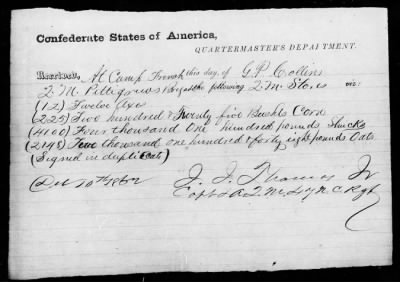 Confederate States of America,
QUARTERMASTER'S DEPARTMENT.
Received, At Camp French this day, of G. P. Collins
Q. M. Pettigrews Brigade the following Q. M. Stores viz:
(12) Twelve Axes
(225) Two hundred & Twenty five Bushls Corn
(4100) Four thousand One hundred pounds Shucks
(2148) Two thousand one hundred & forty eight pounds Oats
(Signed in duplicats)
10th 1862 J. J. Thomas Jr
Capt & A. Q. M. 47 N. C. Regt